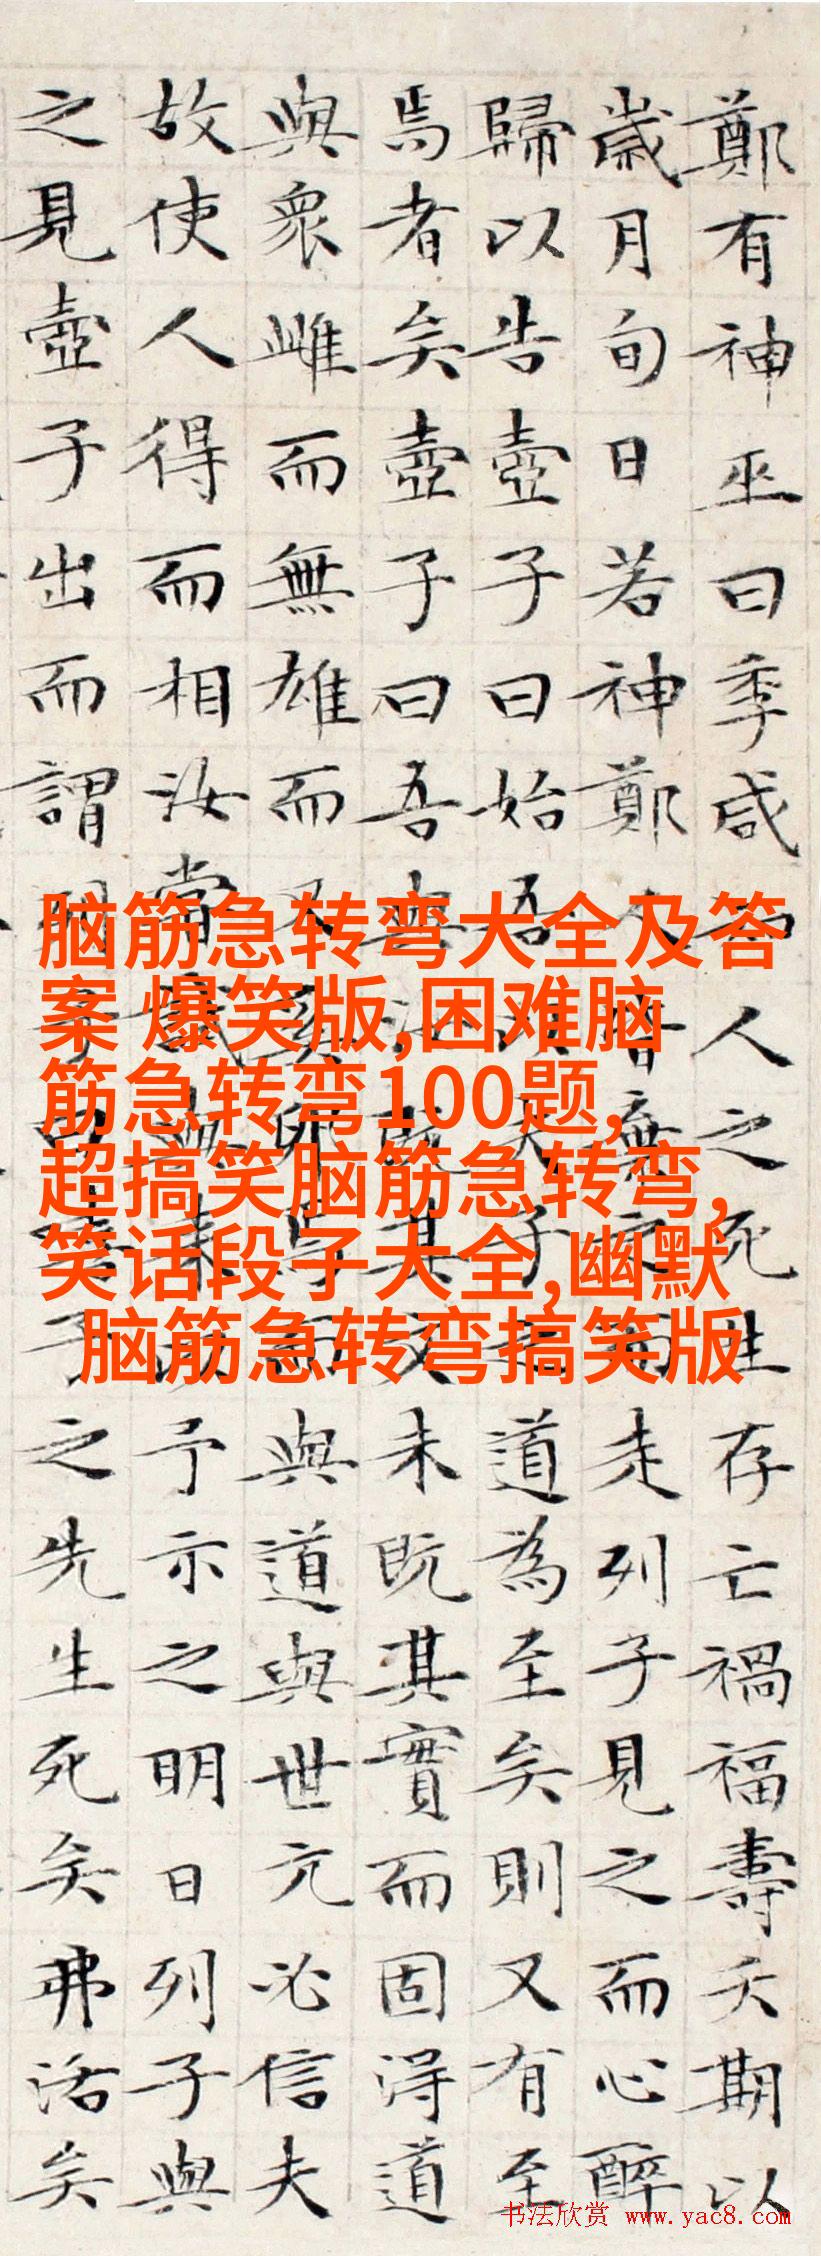 鄭有神巫曰季咸知人之死生存亡禍福壽夭期以
歲月旬日若神鄭人皆棄而走列子見之而心醉
歸以告壺子曰始吾以夫子之道為至矣則又有至
焉者矣壺子曰吾與汝既其文未既其實而固得道
與眾雌而無雄而又奚卵焉而與道與世亢必信夫
故使人得而相汝嘗試與來以予示之明日列子與
之見壺子出而謂列子曰嘻子之先生死矣弗活矣
脑筋急转弯大全及答
案 爆笑版,困难脑
筋急转弯100题,
超搞笑脑筋急转弯,
笑话段子大全,幽默
脑筋急转弯搞笑版
书法欣赏 www.yac8.com